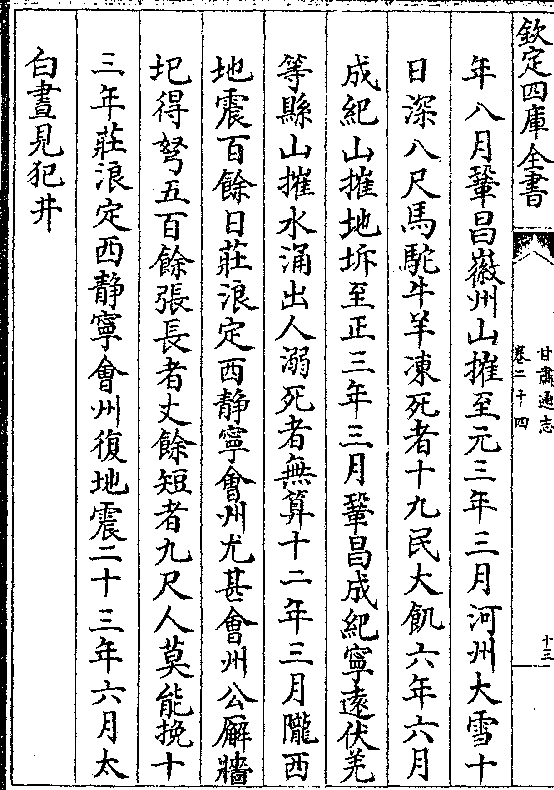 欽定四庫全書
甘肅通志
卷二十四
十三
年八月鞏昌徽州山摧至元三年三月河州大雪十
日深八尺馬駝牛羊凍死者十九民大飢六年六月
成紀山摧地坼至正三年三月鞏昌成紀寧遠伏羌
等縣山摧水涌出人溺死者無算十二年三月隴西
地震百餘日莊浪定西靜寧會州尤甚會州公廨牆
圯得弩五百餘張長者丈餘短者九尺人莫能挽十
三年莊浪定西靜寧會州復地震二十三年六月太
白晝見犯井